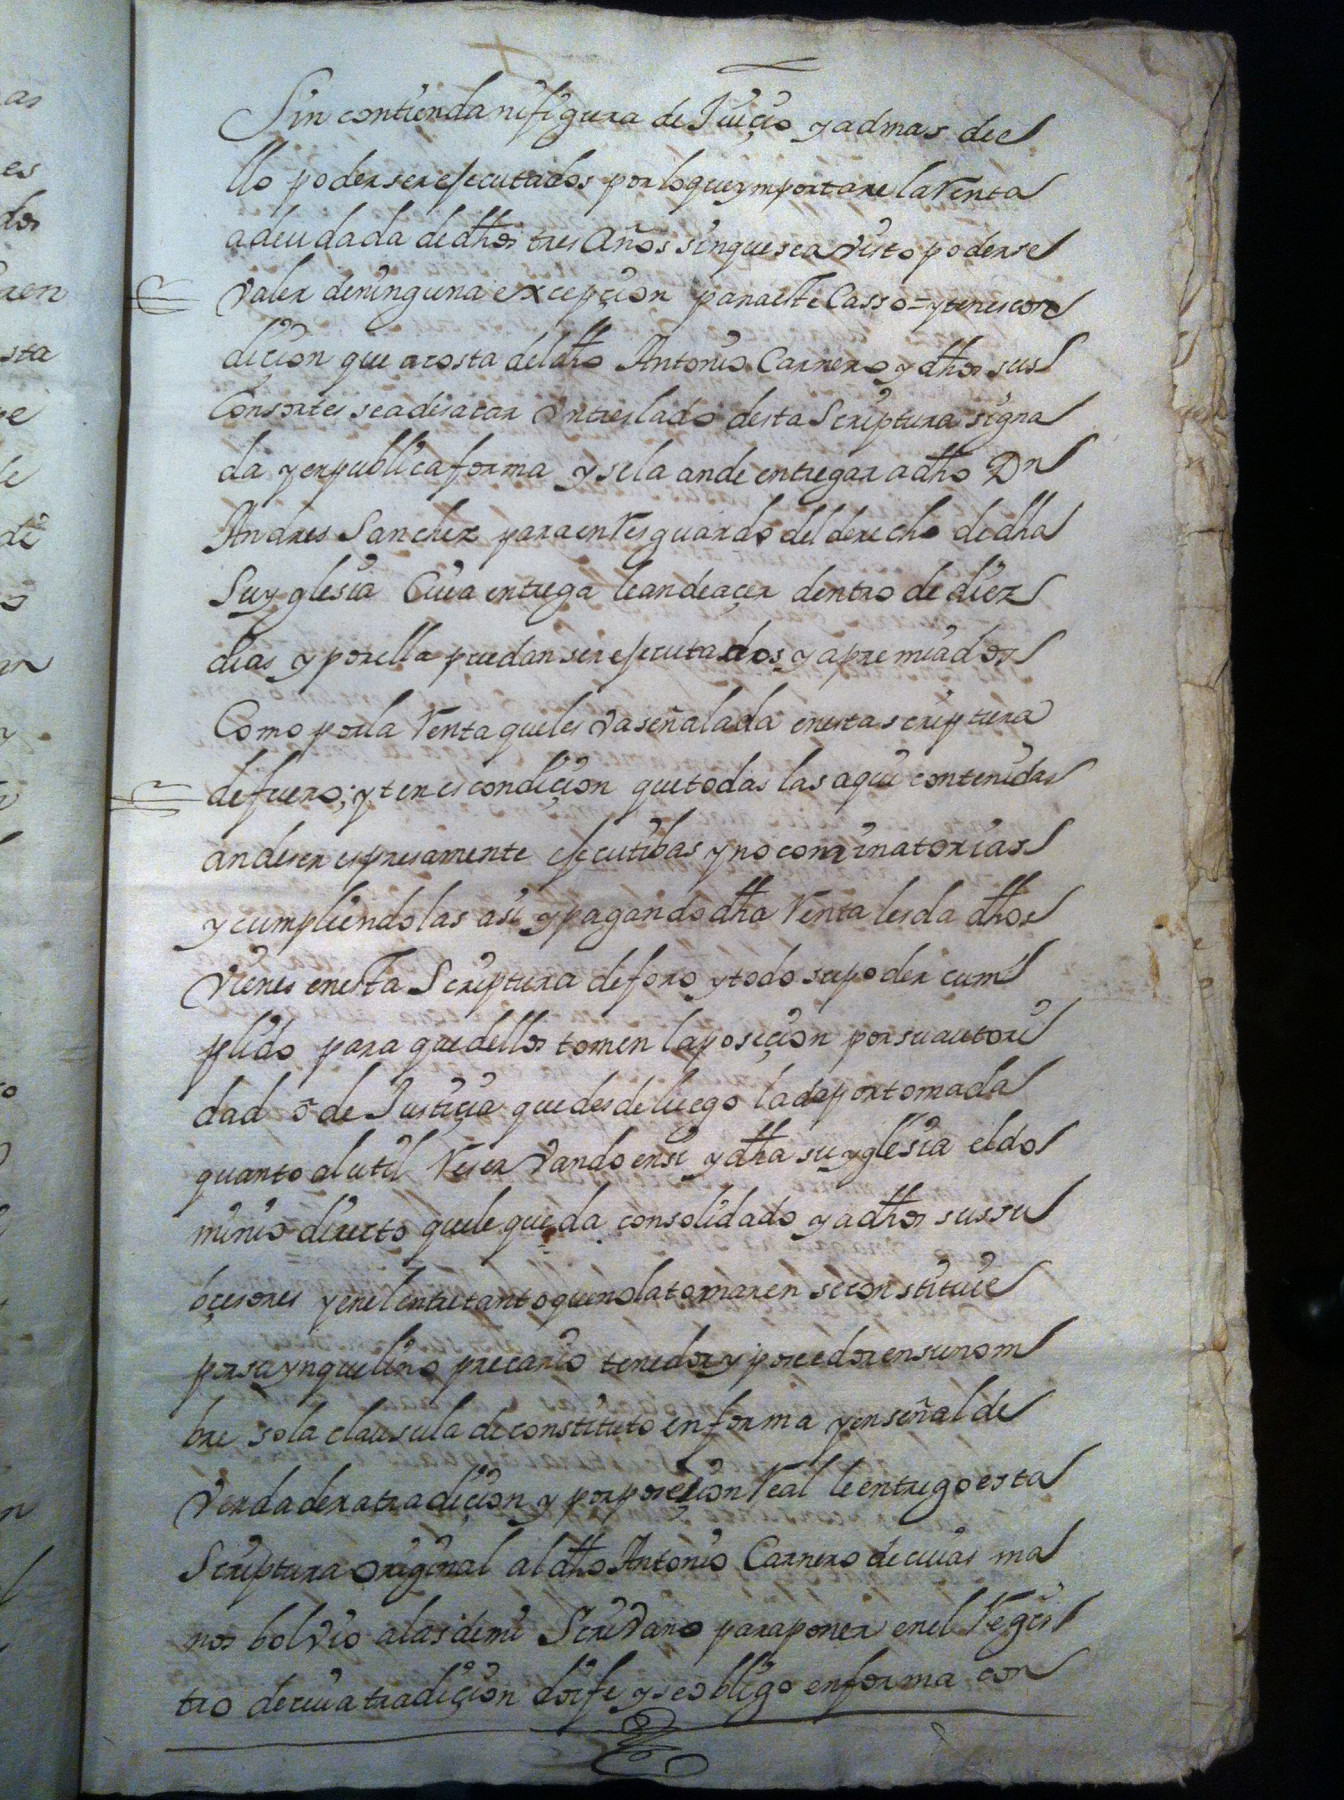 Sin contienda ni figura de Juiçio y admas de e
llo poder ser ejecutados por lo que ymportare la Renta
adeudada de dhos tres Años sin que sea visto poderse
Valer de ninguna excepçion para este Casso = yten es con
diçion que a costa del dho Antonio Carnero y dhos sus
Consortes se a de sacar Un treslado desta Scriptura signa
da y en publica forma y se la an de entregar a dho Dn
Andres Sanchez para en Resguardo del derecho de dha
Su yglesia Cuia entrega le an de açer dentro de diez
dias y por ella puedan ser ejecutados y apremiados
Como por la Renta que les va señalada en esta scriptura
de fuero; yten es condiçion que todas las aqui contenidas
an de ser espresamente ejecutibas y no cominatorias
y cumpliendolas asi y pagando dha Renta les da dhos
Vienes en esta Scriptura de foro y todo su poder cum
plido para que dellos tomen la posiçion por su autori
dad o de Justiçia que desde luego la da por tomada
quanto al util Reservando en si y dha su yglesia el do
minio directo que le queda consolidado y a dhos sus su
bçesores y en el entretanto que no la tomaren se constituie
por sa ynquelino precario tenedor y poseedor en su nom
bre so la clausula de constituto en forma y en señal de
Verdadera tradiçion y por poseçion Real le entrego esta
Scriptura original al dho Antonio Carnero de cuias ma
nos bolvio a las de mi Scrivano para poner en el Regis
tro de cuia tradiçion doi fe y se obligo en forma con